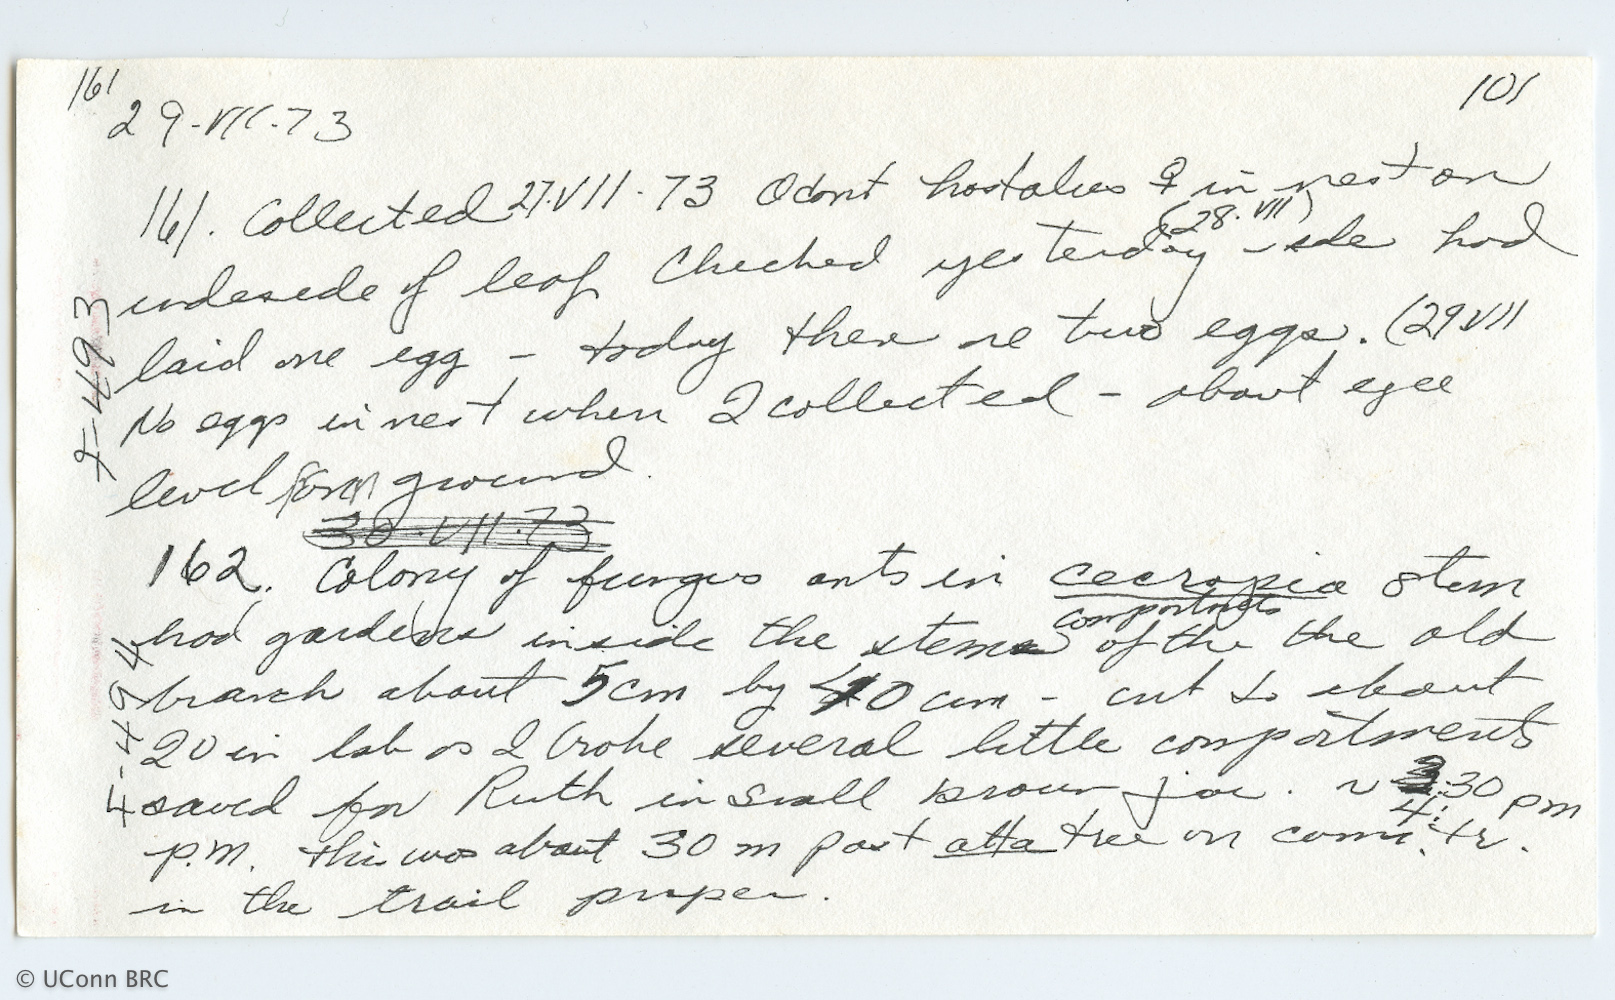 161
101
29-VII-73
161. Collected 27.VII.73 Odont hastatus ♀ in nest on
(28.VII)
underside of leaf Checked yesterday - she had
laid one egg - today there are two eggs. (29VII
No eggs in nest when I collected - about eye
level from ground.
30-VII-73
162. Colony of fungus ants in cecropia stem
compartments
had gardens inside the stem of the the old
branch about 5cm by 40 cm - cut to about
20 in lab as I broke several little compartments
saved for Ruth in small brown jar. ~ 4:30 pm
p.m. this was about 30 m past atta tree on comm. tr.
in the trail proper.
4-493
4-494
© UConn BRC